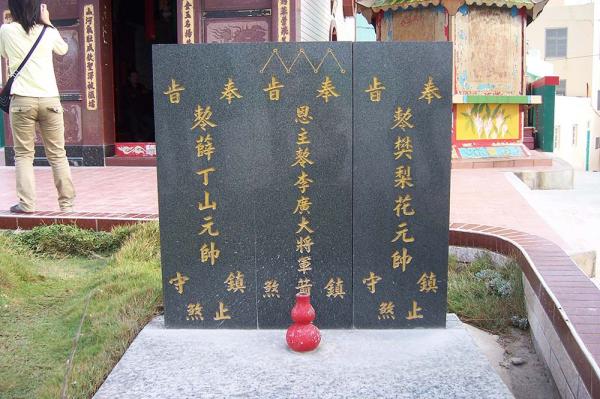 奉旨
敕樊梨花元帥
鎮守
止煞
奉旨
恩主敕李廣大將軍箭
鎮煞
奉旨
敕薛丁山元帥
鎮守
止煞